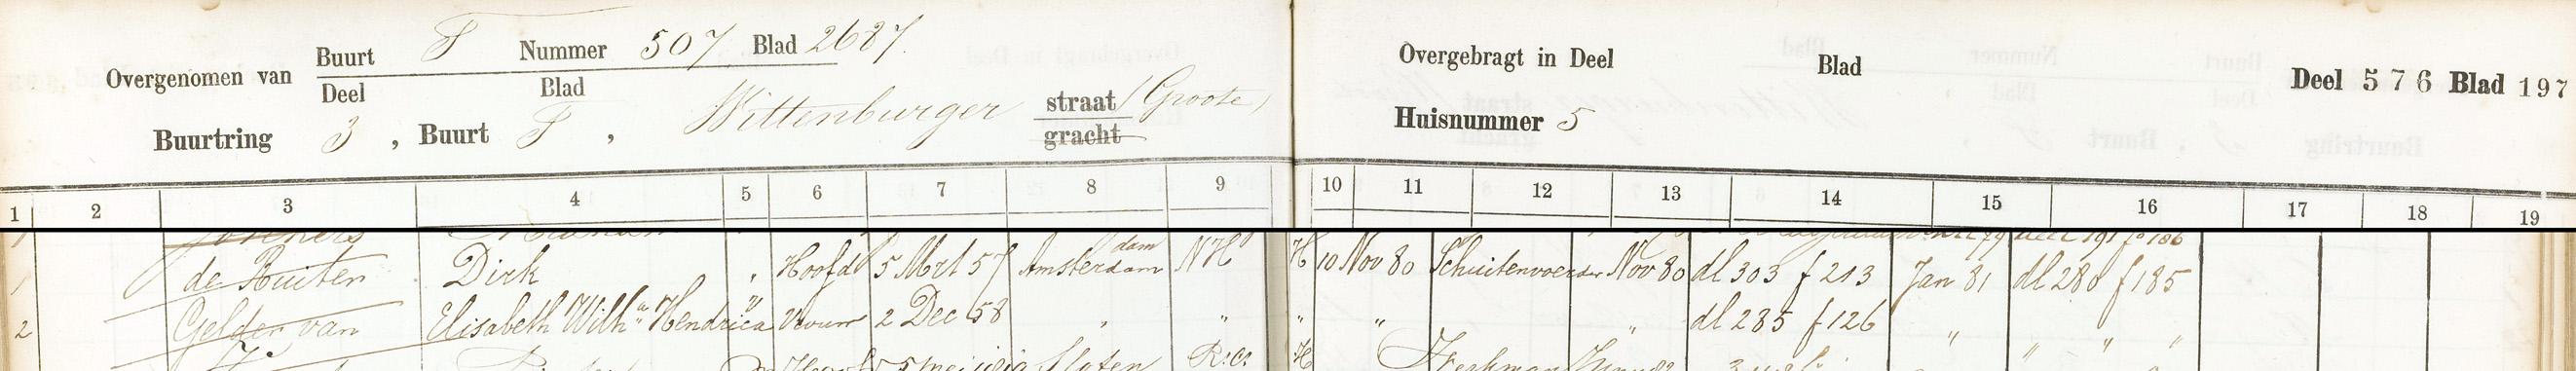 Overgenomen van Buurt F Nummer 507 Blad 2687.
Deel Blad
Buurtring 3, Buurt F, Wittenburger straat (Groote)
gracht
Overgebragt in Deel Blad Deel 576 Blad 197
Huisnummer 5
1 2 3 4 5 6 7 8 9 10 11 12 13 14 15 16 17 18 19
1 de Ruiter Dirk " Hoofd 5 Mrt 57 Amsterdam dam NH H 10 Nov 80 Schuitenvoerder Nov 80 dl 303 f 213 Jan 81 dl 280 f 185
2 Gelder van Elisabeth Wilha Hendrica " Vrouw 2 Dec 58 " " " " " dl 285 f 126 " " " "
Sloten R.C. H